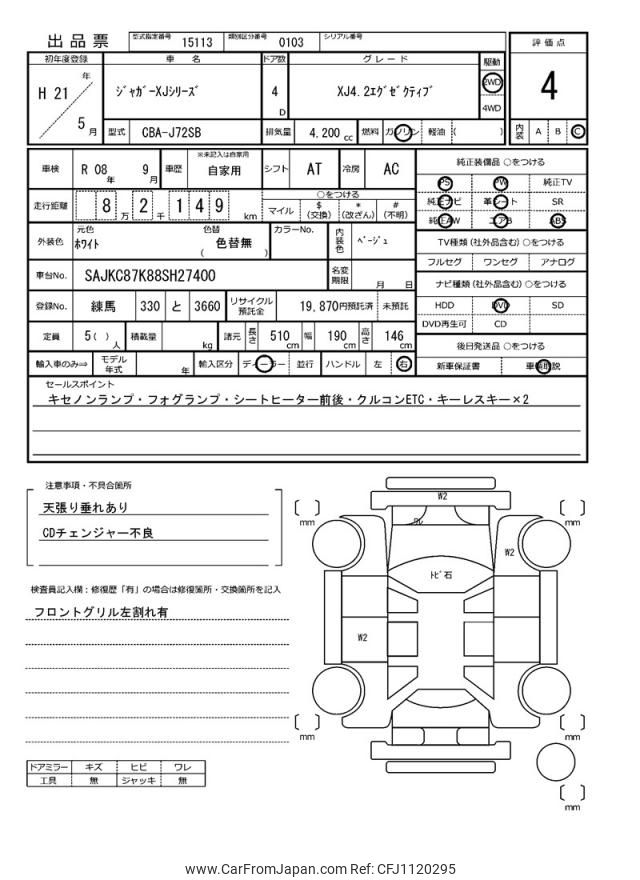 出品票 型式指定番号 15113 類別区分番号 0103 シリアル番号
評価点
初年度登録 車 名 ドア数 グレード 駆動
H 21 年 5 月
ジャガーXJシリーズ 4 D XJ4.2エグゼクティブ 2WD 4WD
4
型式 CBA-J72SB 排気量 4.200 cc 燃料 ガソリン 軽油 ( )
内装 A B C
車検 R 08 年 9 月 車歴 ※未記入は自家用 自家用 シフト AT 冷房 AC
純正装備品 ○をつける
PS PW 純正TV
純正ナビ 革シート SR
純正AW エアB ABS
走行距離 8 万 2 千 1 4 9 km
○をつける
マイル $ (交換) * (改ざん) # (不明)
外装色 元色 ホワイト 色替 ( 色替無 ) カラーNo. 内装色 ベージュ
TV種類 (社外品含む) ○をつける
フルセグ ワンセグ アナログ
車台No. SAJKC87K88SH27400 名変期限 月 日
ナビ種類 (社外品含む) ○をつける
HDD DVD SD
DVD再生可 CD
登録No. 練馬 330 と 3660 リサイクル預託金 19,870円預託済 未預託
定員 5( ) 人 積載量 kg 諸元 長さ 510 cm 幅 190 cm 高さ 146 cm
後日発送品 ○をつける
新車保証書 車輌取説
輸入車のみ⇒ モデル年式 年 輸入区分 ディーラー 並行 ハンドル 左 右
セールスポイント
キセノンランプ・フォグランプ・シートヒーター前後・クルコンETC・キーレスキー×2
注意事項・不具合箇所
天張り垂れあり
CDチェンジャー不良
検査員記入欄：修復歴「有」の場合は修復箇所・交換箇所を記入
フロントグリル左割れ有
W2
ワレ
W2
トビ石
W2
mm
mm
mm
mm
mm
ドアミラー キズ ヒビ ワレ
工具 無 ジャッキ 無
www.CarFromJapan.com Ref: CFJ1120295